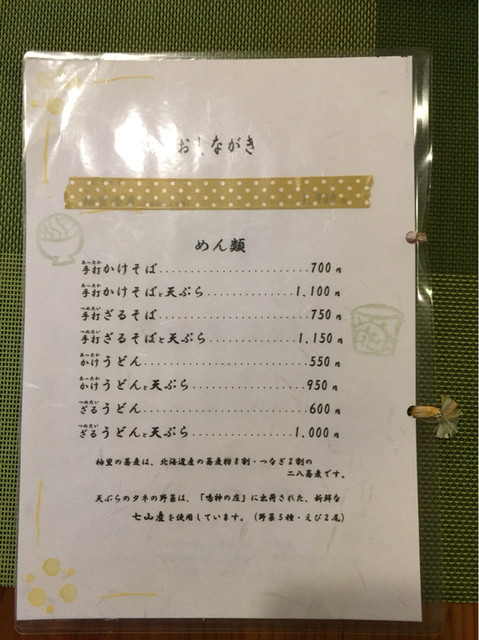 おしながき
めん類
あったか
手打かけそば............700円
あったか
手打かけそばと天ぷら............1,100円
つめたい
手打ざるそば............750円
つめたい
手打ざるそばと天ぷら............1,150円
あったか
かけうどん............550円
あったか
かけうどんと天ぷら............950円
つめたい
ざるうどん............600円
つめたい
ざるうどんと天ぷら............1,000円
柚里の蕎麦は、北海道産の蕎麦粉8割・つなぎ2割の
二八蕎麦です。
天ぷらのタネの野菜は、「鳴神の庄」に出荷された、新鮮な
七山産を使用しています。(野菜5種・えび2尾)